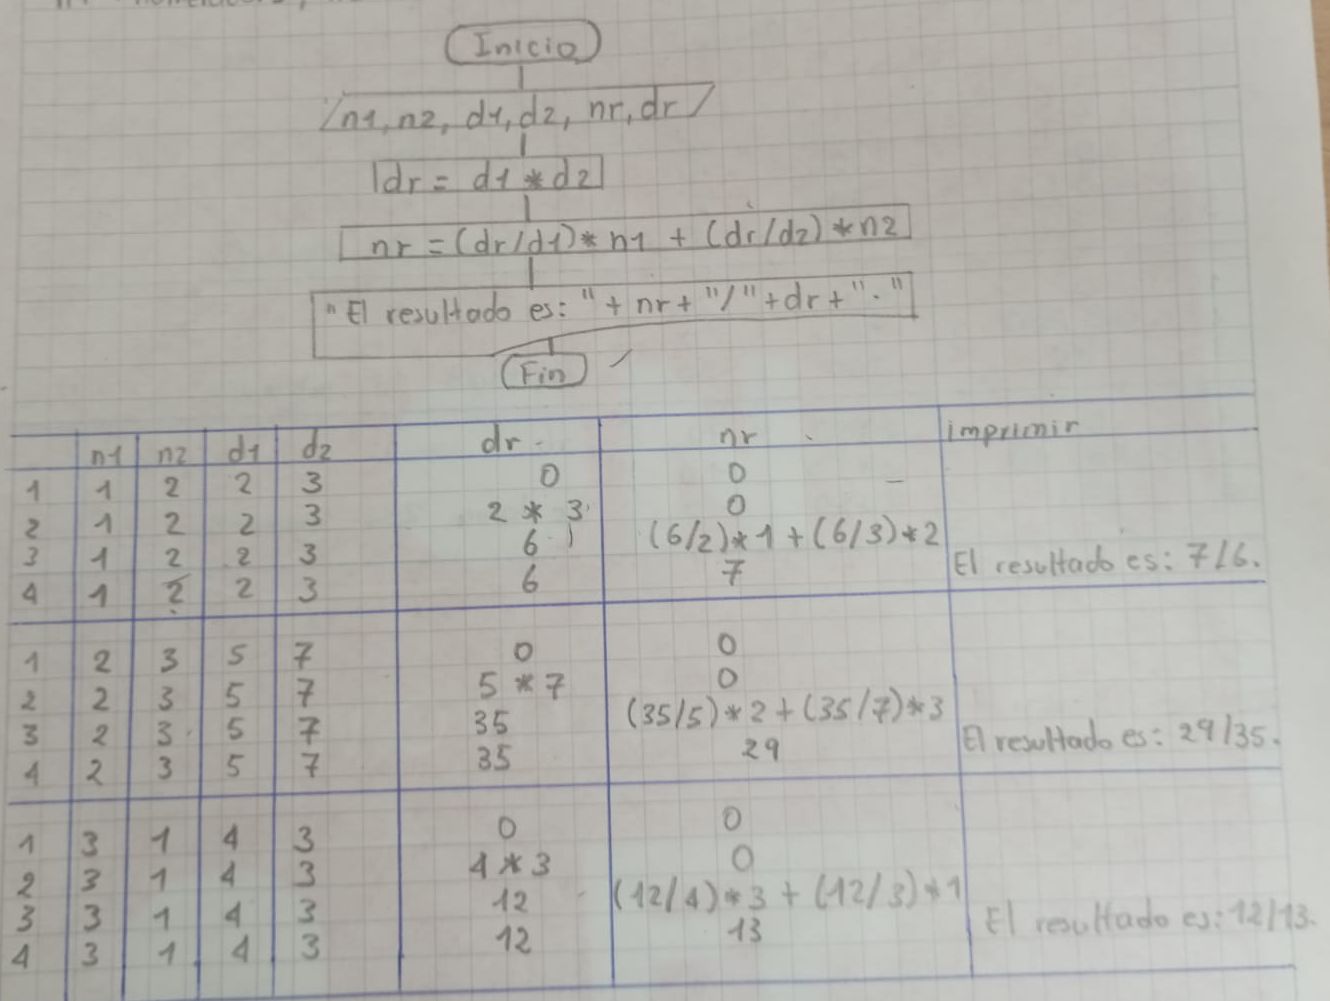 Inicio
n1, n2, d1, d2, nr, dr
dr = d1 * d2
nr = (dr/d1) * n1 + (dr/d2) * n2
"El resultado es: " + nr + "/" + dr + "."
Fin
n1 n2 d1 d2 dr nr imprimir
1 1 2 2 3 0 0 -
2 1 2 2 3 2 * 3 0
3 1 2 2 3 6 (6/2)*1 + (6/3)*2
4 1 2 2 3 6 7 El resultado es: 7/6.
1 2 3 5 7 0 0
2 2 3 5 7 5 * 7 0
3 2 3 5 7 35 (35/5)*2 + (35/7)*3
4 2 3 5 7 35 29 El resultado es: 29/35.
1 3 1 4 3 0 0
2 3 1 4 3 4 * 3 0
3 3 1 4 3 12 (12/4)*3 + (12/3)*1
4 3 1 4 3 12 13 El resultado es: 12/13.